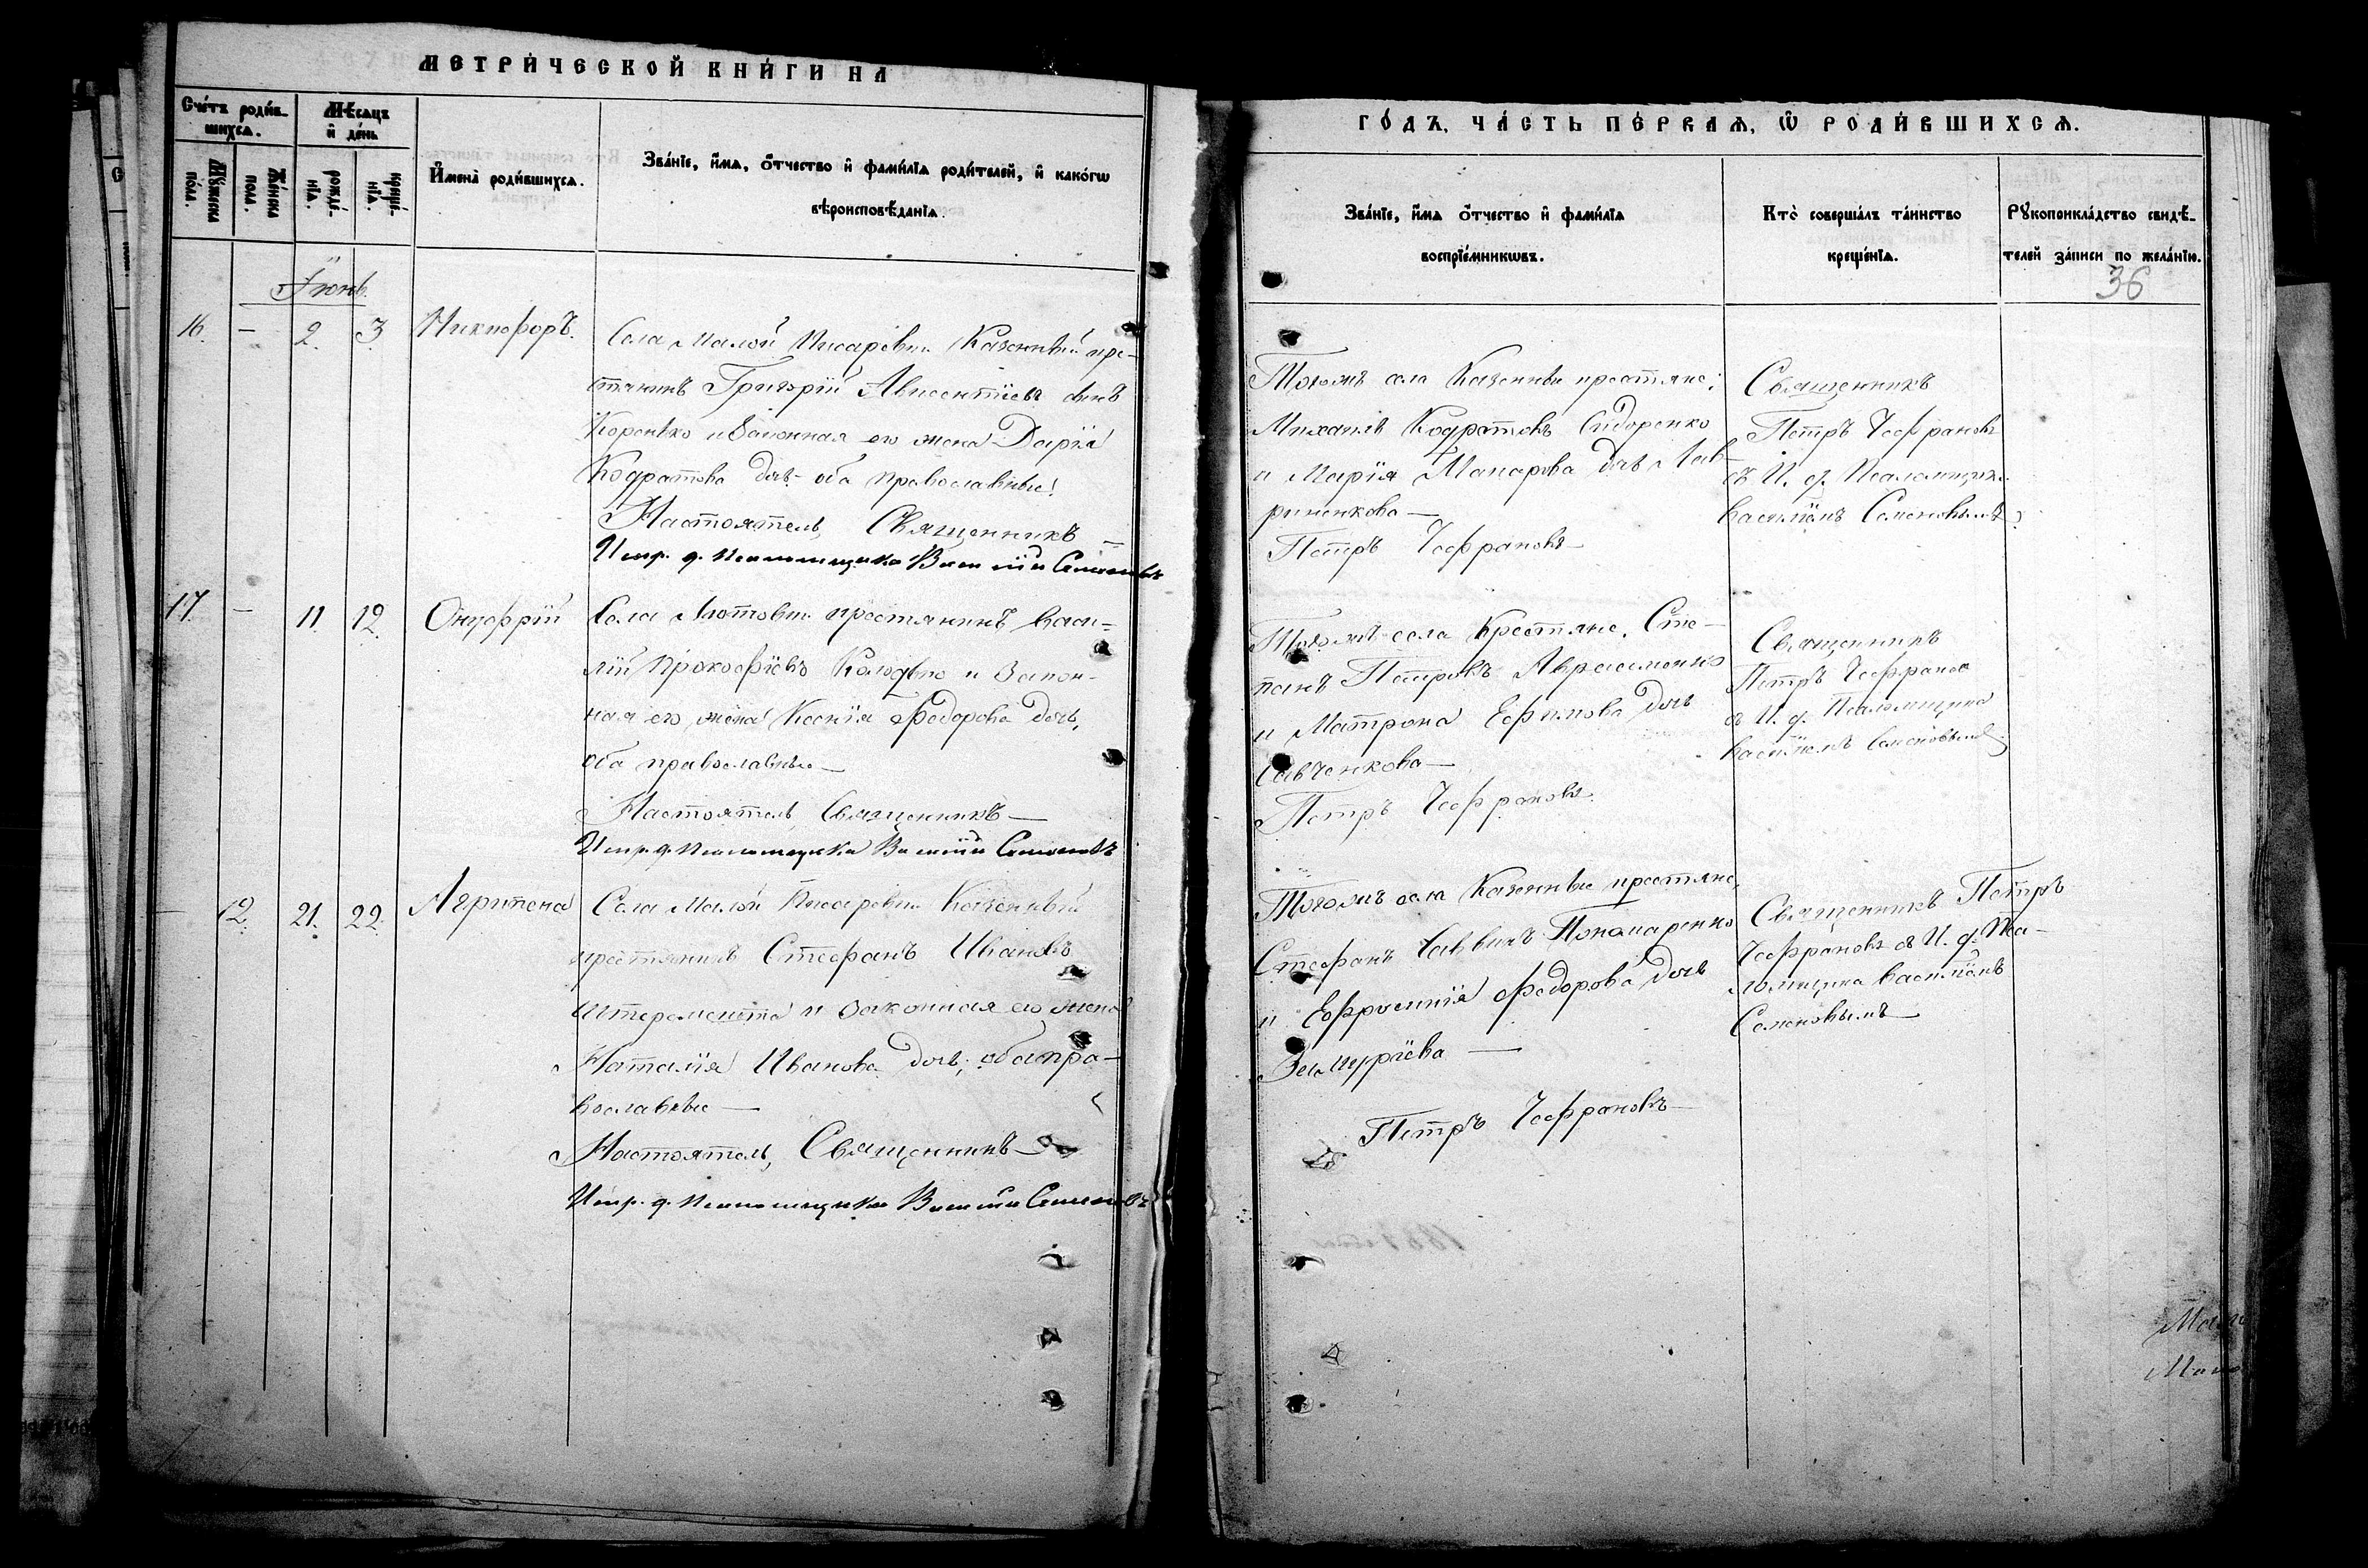 МЕТРИ́ЧЕСКОЙ КНИ́ГИ НА
Сче́тъ роди́в-
шихсѧ.
Мѣ́сѧцъ
и҆ де́нь
Мꙋ́жеска
по́ла.
Же́нска
пола.
рожде́-
нїѧ.
креще́-
нїѧ.
И҆мена̀ роди́вшихсѧ.
Зва́нїе, и҆́мѧ, ѻ҆́тчество и҆ фами́лїѧ роди́телей, и҆ како́гѡ
вѣроисповѣ́данїѧ.
Іюнь.
16. - 2. 3. Никифоръ.
Села Малой Писаревки Казенный кре-
стянинъ Григорій Авксентіевъ сынъ
и Законная его жена Дарія
Кодратова дочь оба православные.
Настоятель, Священникъ
Испр. д. Псаломщика Василій Семеновъ
17. - 11. 12. Онуфрій
Села Лютовки крестянинъ Васи-
лій Прокофіевъ и Закон-
ная его жена Ксенія Федорова дочь,
оба православные
Настоятель, Священникъ
Испр. д. Псаломщика Василій Семеновъ
- 12. 21. 22. Агрипена
Села Малой Писаревки Казенный
крестянинъ Стефанъ Ивановъ
и законная его жена
Наталія Иванова дочь, оба пра-
вославные
Настоятель, Священникъ
Испр. д. Псаломщика Василій Семеновъ
ГО́ДЪ, ЧА́СТЬ ПЕ́РВАѦ, Ѡ҆ РОДИ́ВШИХСѦ.
Зва́нїе, и҆́мѧ ѻ҆́тчество и҆ фами́лїѧ
воспрїе́мникѡвъ.
Кто̀ соверша́лъ та́инство
креще́нїѧ.
Рꙋкоприкла́дство свидѣ́-
телей за́писи по жела́нїю.
36
Тогожъ села Казенные крестяне:
Михаилъ Кодратовъ Сидоренко
и Марія Макарова дочь Лав-
риненкова
Петръ Чефрановъ
Священникъ
Петръ Чефрановъ
съ И. д. Псаломщика
Василіемъ Семеновымъ
Тогожъ села Крестяне, Сте-
панъ Петровъ Аврааменко
и Матрона Ефимова дочь
Савченкова
Петръ Чефрановъ.
Священникъ
Петръ Чефрановъ
съ И. д. Псаломщика
Василіемъ Семеновымъ
Тогожъ села Казенные крестяне,
Стефанъ Саввинъ Пономаренко
и Ефросинія Федорова дочь
Петръ Чефрановъ
Священникъ Петръ
Чефрановъ съ И. д. Пса-
ломщика Василіемъ
Семеновымъ